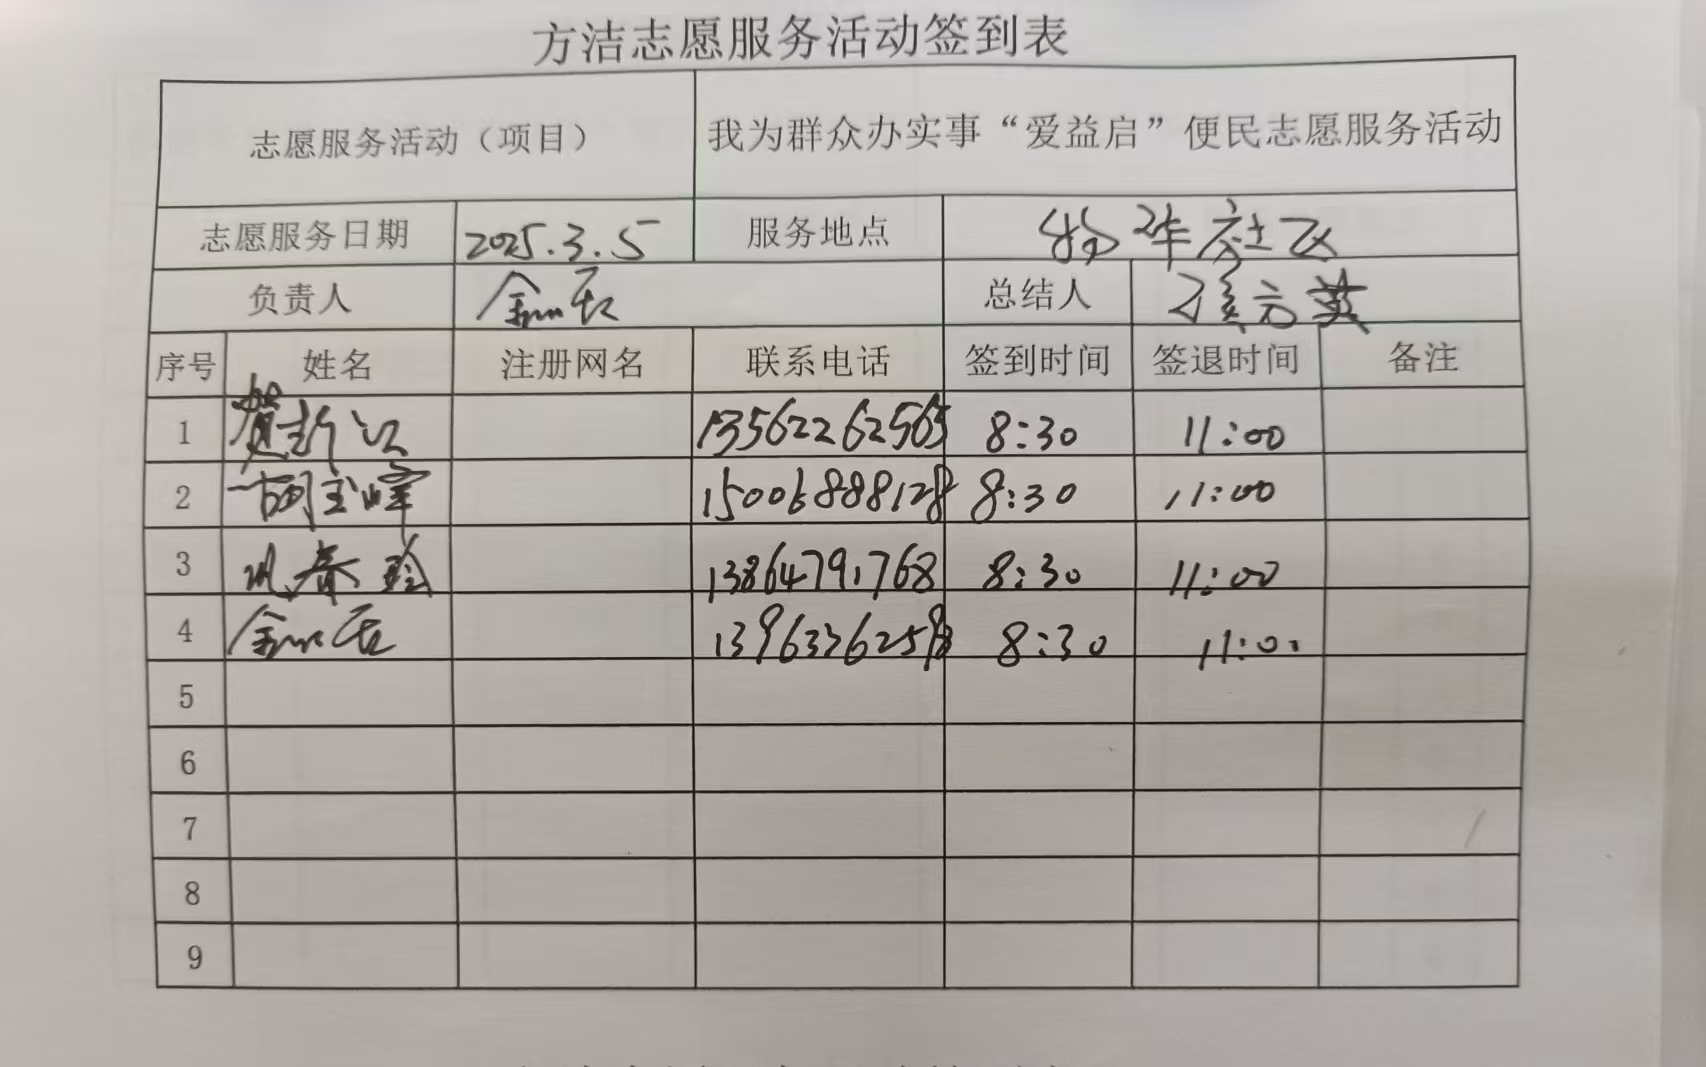 方洁志愿服务活动签到表
志愿服务活动（项目） 我为群众办实事“爱益启”便民志愿服务活动
志愿服务日期 2025.3.5 服务地点 华社区
负责人 总结人 孙元英
序号 姓名 注册网名 联系电话 签到时间 签退时间 备注
1 贺新江 13562262565 8:30 11:00
2 胡玉峰 15006888128 8:30 11:00
3 巩春玲 13864791768 8:30 11:00
4 8:30 11:00
5
6
7
8
9